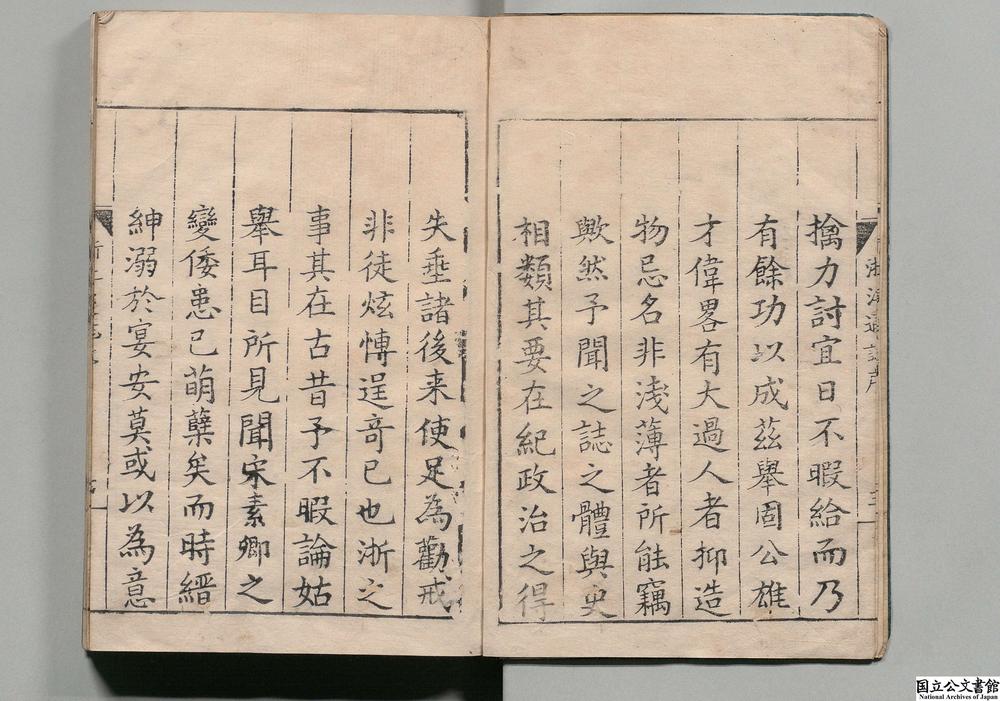 擒力討宜日不暇給而乃
有餘功以成茲舉固公雄
才偉畧有大過人者抑造
物忌名非淺薄者所能竊
歟然予聞之誌之體與史
相類其要在紀政治之得
失垂諸後来使足為勸戒
非徒炫愽逞竒已也浙之
事其在古昔予不暇論姑
舉耳目所見聞宋素卿之
變倭患已萌蘖矣而時縉
紳溺於宴安莫或以為意
国立公文書館
National Archives of Japan